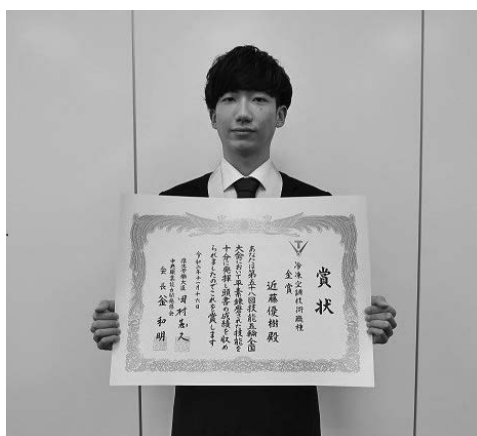 賞状
冷凍空調技術職種
金賞
近藤優樹殿
あなたは第五十八回技能五輪全国
大会において平素錬磨された技能を
十分に発揮し頭書の成績を収め
られましたのでこれを賞します
令和二年十一月十六日
厚生労働大臣 田村憲久
中央職業能力開発協会
会長 釜和明